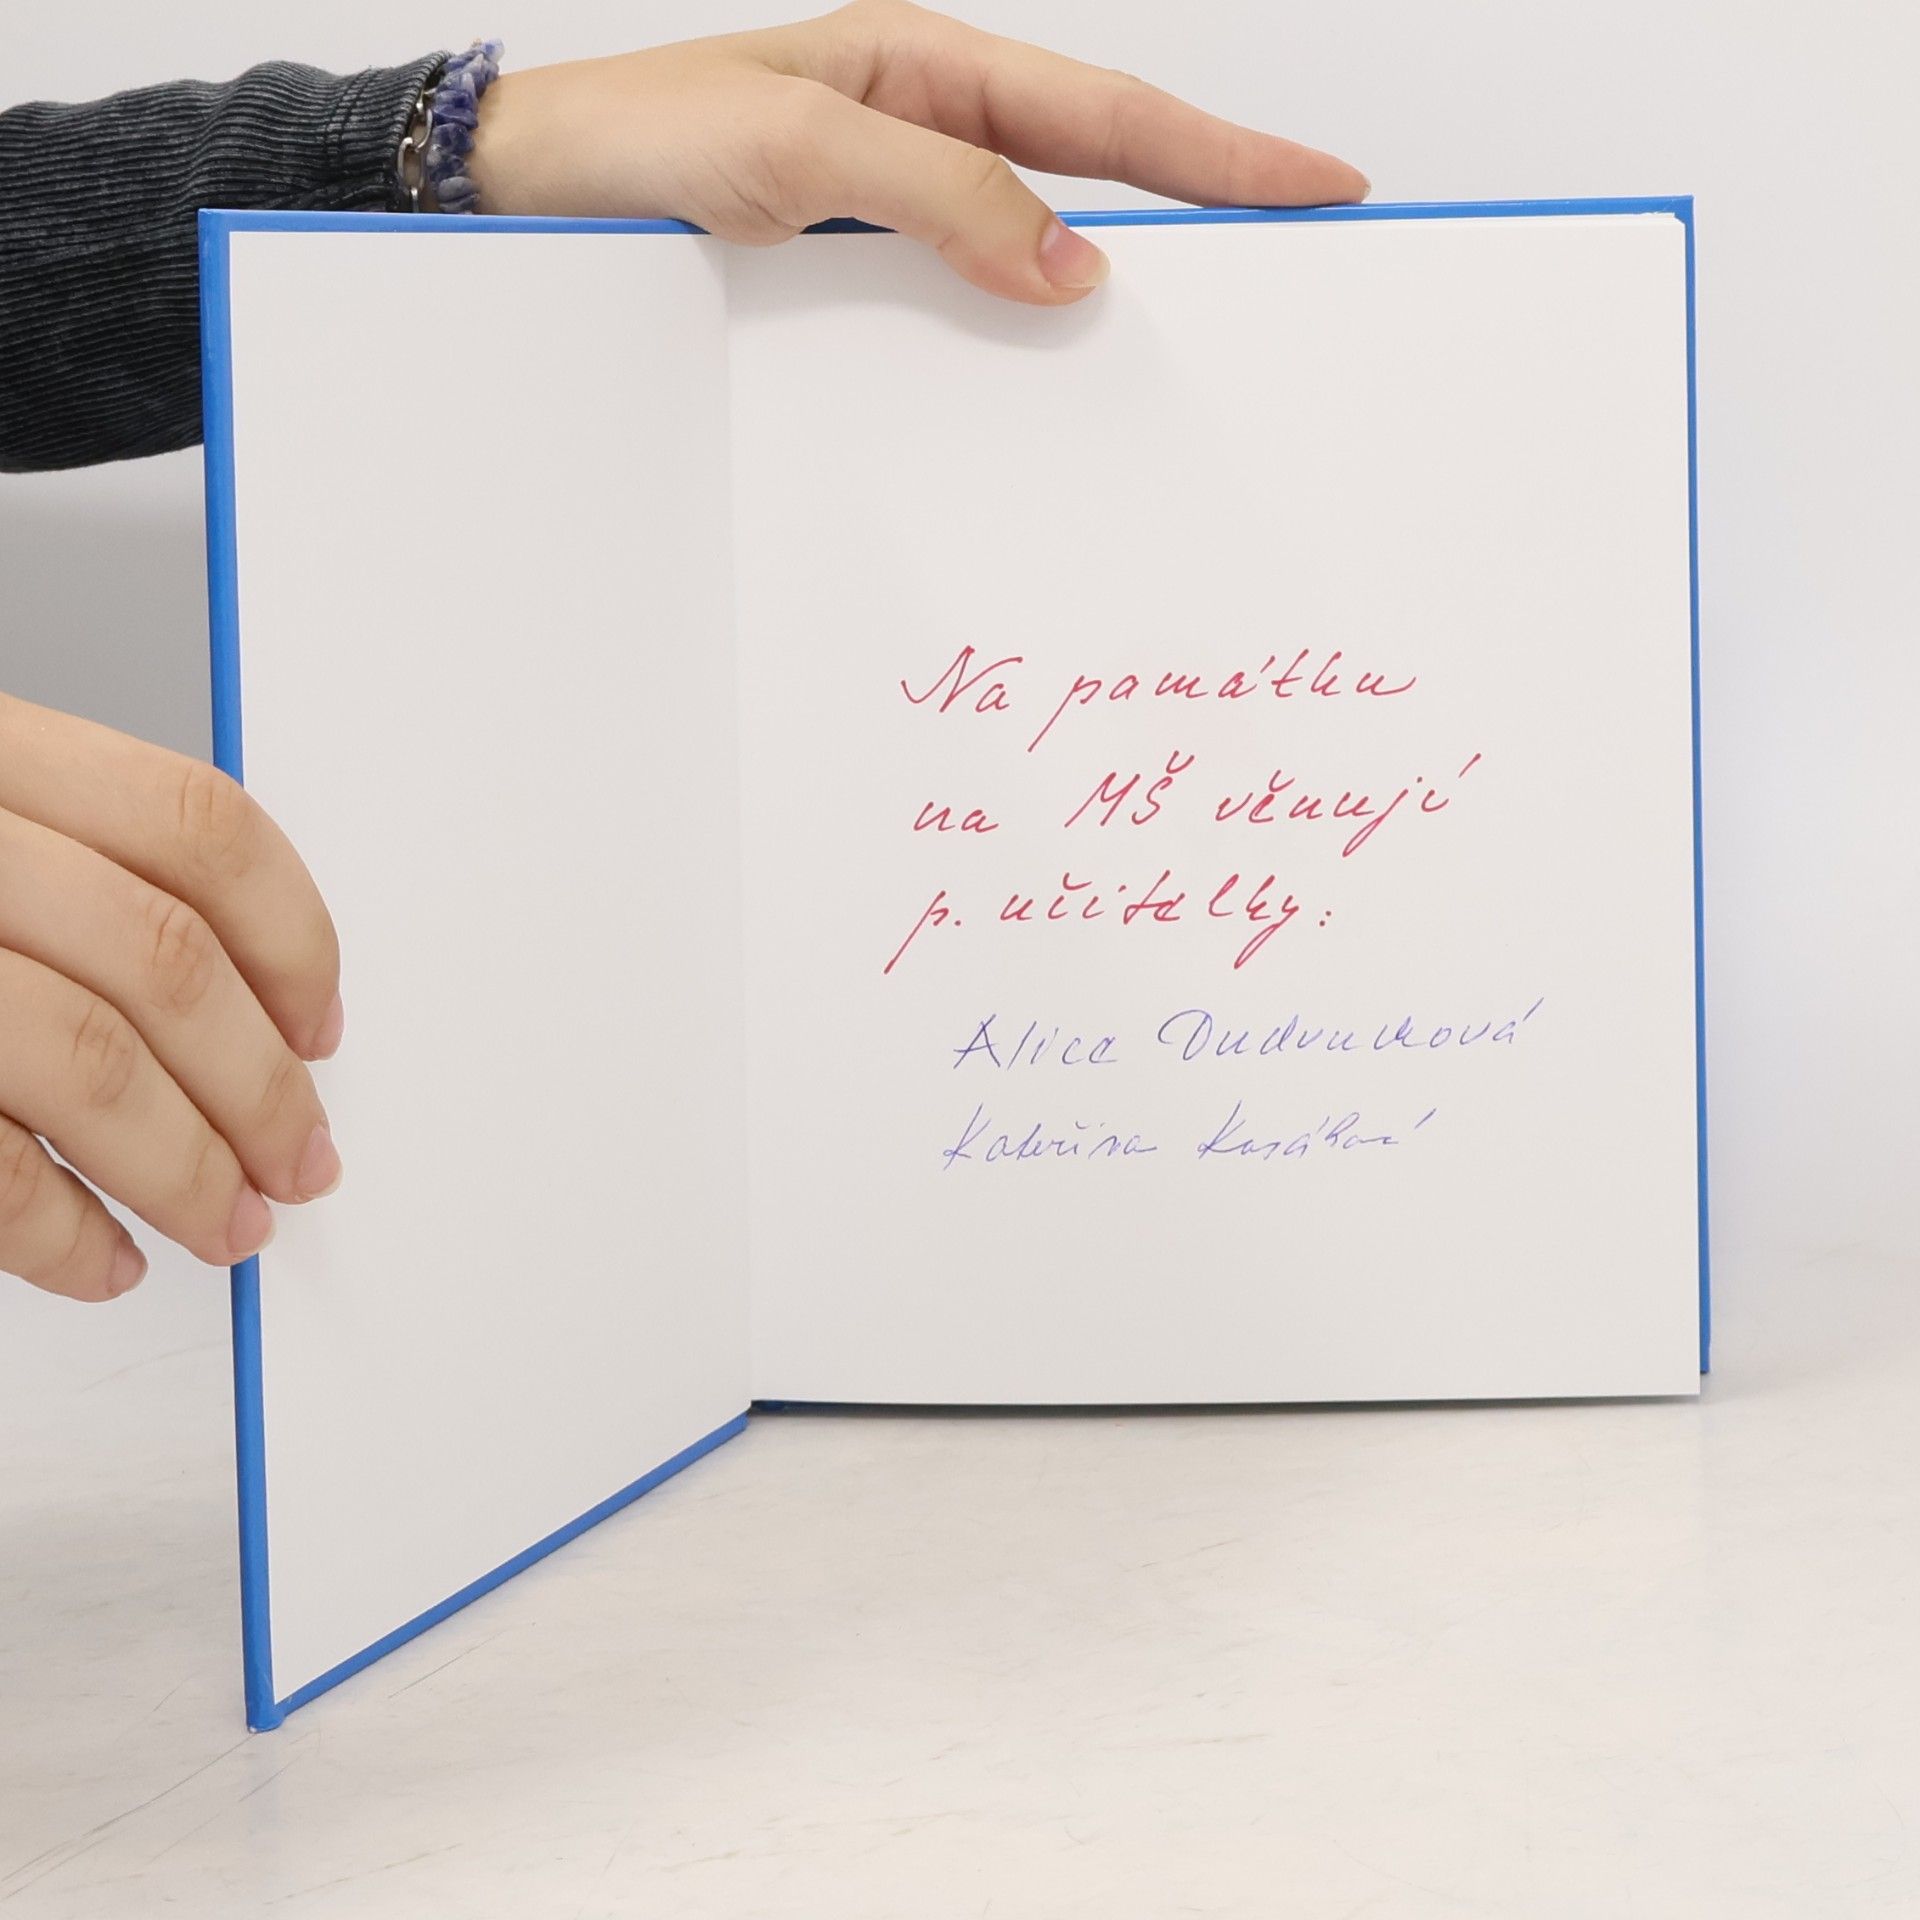 Na památku
na MŠ věnují
p. učitelky:
Alice
Kateřina